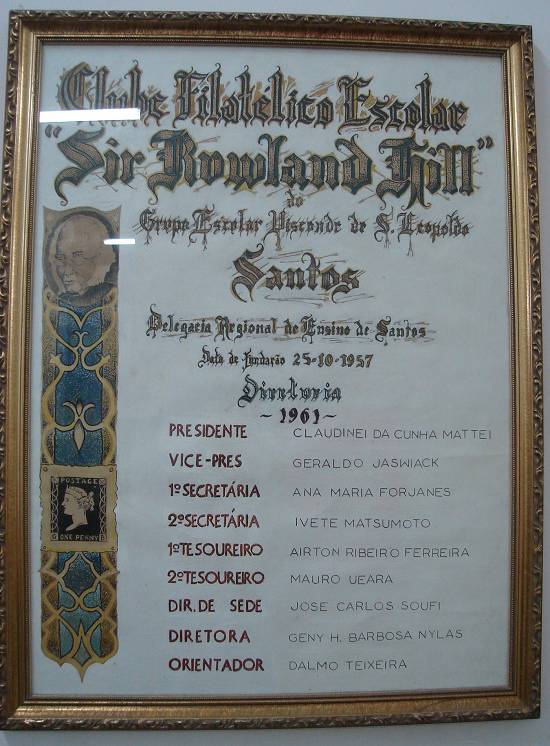 Clube Filatelico Escolar
"Sir Rowland Hill"
do
Grupo Escolar Visconde de S. Leopoldo
Santos
Delegacia Regional de Ensino de Santos
Data de Fundação 25-10-1957
Diretoria
~1961~
PRESIDENTE CLAUDINEI DA CUNHA MATTEI
VICE-PRES GERALDO JASWIACK
1º SECRETÁRIA ANA MARIA FORJANES
2º SECRETÁRIA IVETE MATSUMOTO
1º TESOUREIRO AIRTON RIBEIRO FERREIRA
2º TESOUREIRO MAURO UEARA
DIR. DE SEDE JOSE CARLOS SOUFI
DIRETORA GENY H. BARBOSA NYLAS
ORIENTADOR DALMO TEIXEIRA
POSTAGE
ONE PENNY